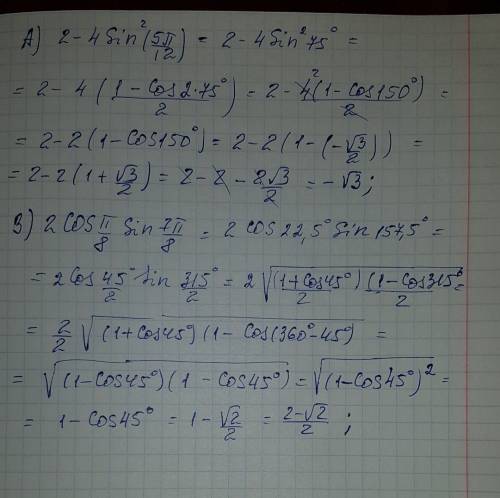 A) 2-4Sin²(5π/12) = 2-4Sin²75° =
= 2-4(1-Cos2·75°/2) = 2-4²(1-Cos150°)/2 =
= 2-2(1-COS150°) = 2-2(1-(-√3/2)) =
= 2-2(1+√3/2) = 2-2-2√3/2 = -√3;
B) 2COS π/8 Sin 7π/8 = 2 COS22,5° Sin157,5° =
= 2Cos 45°/2 Sin 315°/2 = 2√((1+Cos45°)/2 (1-Cos315°)/2) =
= 2/2 √((1+Cos45°)(1-Cos(360°-45°)) =
= √((1-Cos45°)(1-Cos45°)) = √((1-Cos45°)²) =
= 1-Cos45° = 1-√2/2 = 2-√2/2 ;